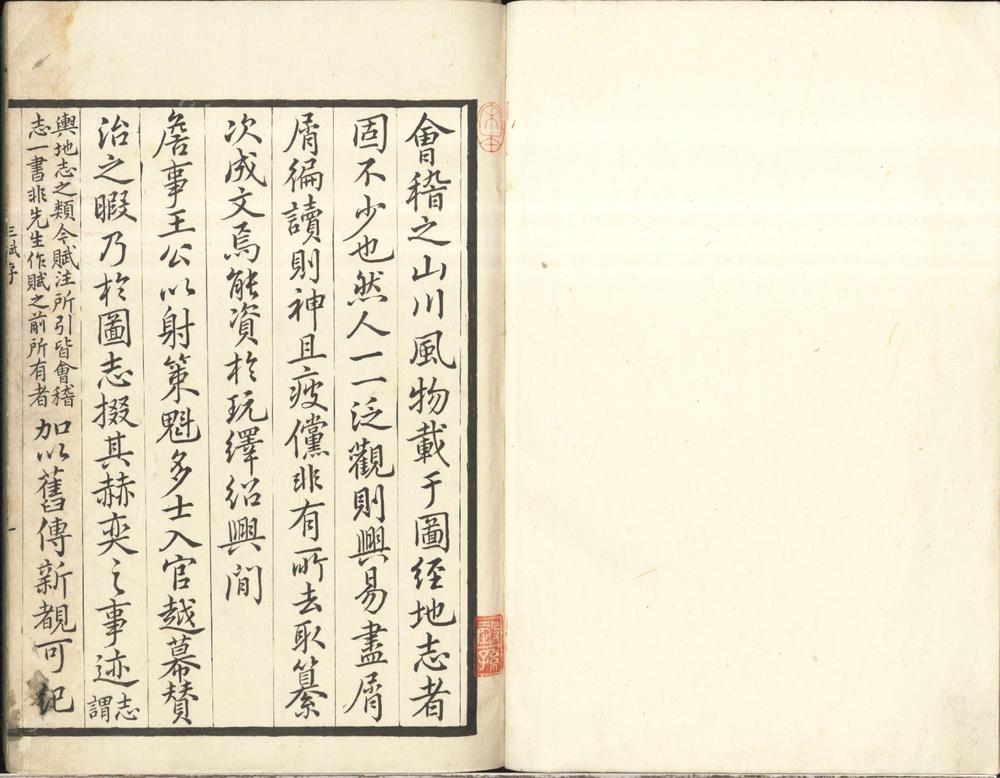 會稽之山川風物載于圖經地志者
固不少也然人一一泛觀則興易盡屑
屑徧讀則神且疲儻非有所去取纂
次成文焉能資於玩繹紹興間
詹事王公以射策魁多士入官越幕賛
治之暇乃於圖志掇其赫奕之事迹志謂
輿地志之類今賦注所引皆會稽志一書非先生作賦之前所有者加以舊傳新覩可紀
三賦序
一